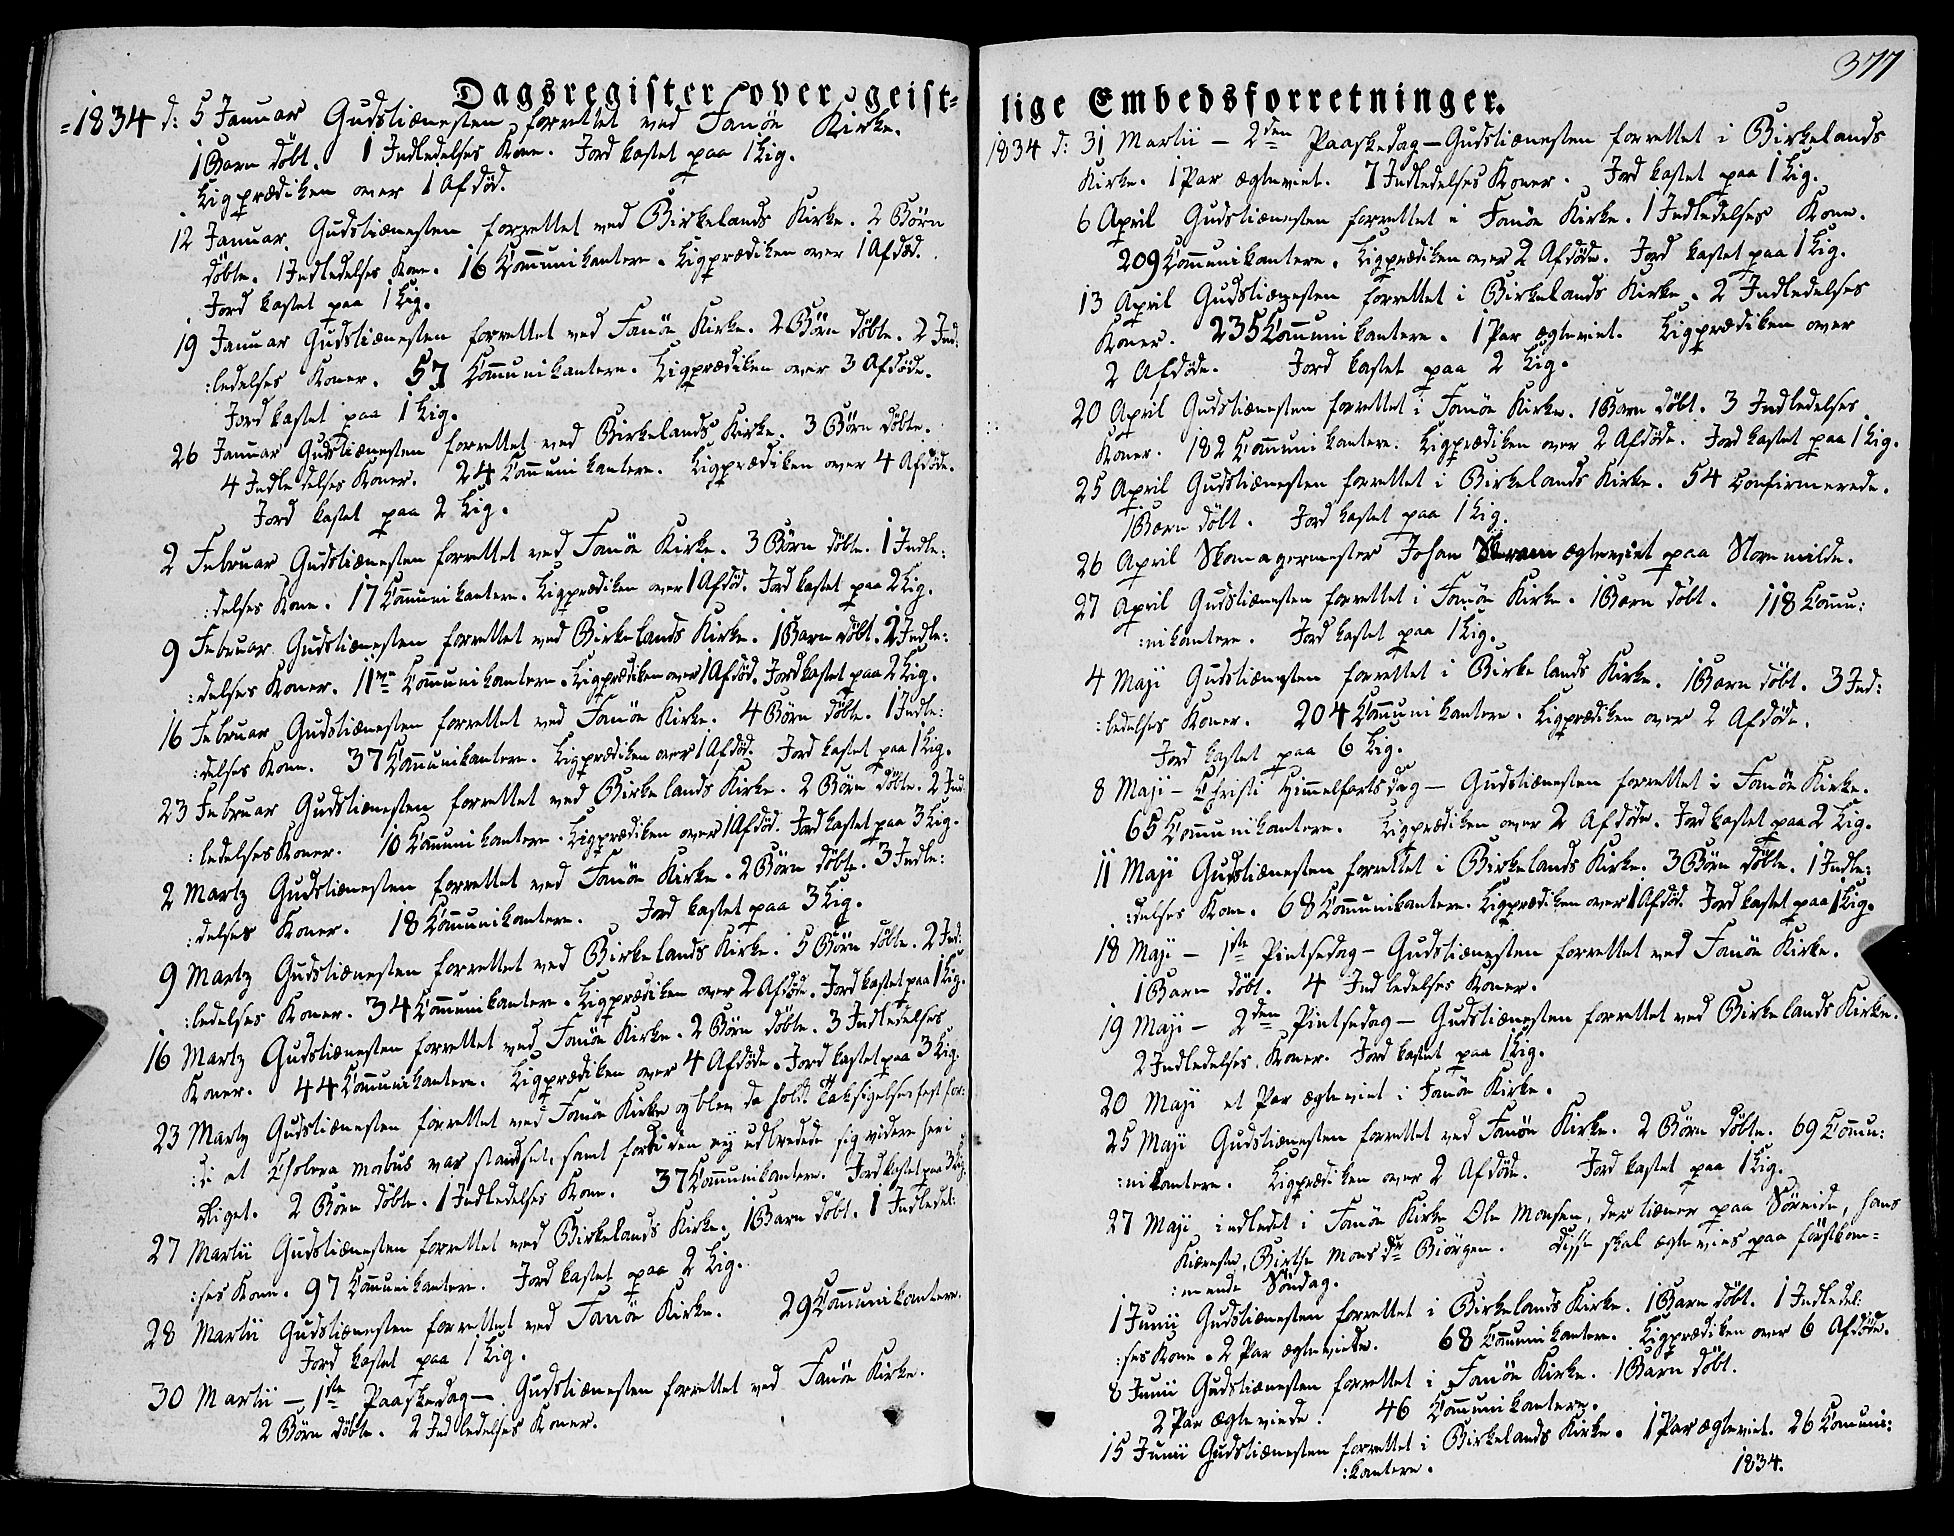 Dagsregister over geist=
=1834 d: 5 Januar Gudstienesten forrettet ved Fanöe Kirke.
1 Barn döbt. 1 Indledelses Kone. Jord kastet paa 1 Lig.
Ligprædiken over 1 Afdöd.
12 Januar. Gudstienesten forrettet ved Birkelands Kirke. 2 Börn
döbte. 1 Indledelses Kone. 16 Communikantere. Ligprædiken over 1 Afdöd.
Jord kastet paa 1 Lig.
19 Januar Gudstienesten forrettet ved Fanöe Kirke. 2 Börn döbte. 2 Ind:
:ledelses Koner. 57 Communikantere. Ligprædiken over 3 Afdöde.
Jord kastet paa 1 Lig.
26 Januar Gudstienesten forrettet ved Birkelands Kirke. 3 Börn döbte.
4 Indledelses Koner. 24 Communikantere. Ligprædiken over 4 Afdöde.
Jord kastet paa 2 Lig.
2 Februar Gudstienesten forrettet ved Fanöe Kirke. 3 Börn döbte. 1 Indle:
:delses Kone. 17 Communikantere. Ligprædiken over 1 Afdöd. Jord kastet paa 2 Lig.
9 Februar Gudstienesten forrettet ved Birkelands Kirke. 1 Barn döbt. 2 Indle:
:delses Koner. 11 Communikantere. Ligprædiken over 1 Afdöd. Jord kastet paa 2 Lig.
16 Februar Gudstienesten forrettet ved Fanöe Kirke. 4 Börn döbte. 1 Indle:
:delses Kone. 37 Communikantere. Ligprædiken over 1 Afdöd. Jord kastet paa 1 Lig.
23 Februar Gudstienesten forrettet ved Birkelands Kirke. 2 Börn döbte. 2 Ind:
:ledelses Koner. 10 Communikantere. Ligprædiken over 1 Afdöd. Jord kastet paa 3 Lig.
2 Martz Gudstienesten forrettet ved Fanöe Kirke. 2 Börn döbte. 3 Indle:
:delses Koner. 18 Communikantere. Jord kastet paa 3 Lig.
9 Martz Gudstienesten forrettet ved Birkelands Kirke. 5 Börn döbte. 2 Ind:
:ledelses Koner. 34 Communikantere. Ligprædiken over 2 Afdöde. Jord kastet paa 1 Lig.
16 Martz Gudstienesten forrettet ved Fanöe Kirke. 2 Börn döbte. 3 Indledelses
Koner. 44 Communikantere. Ligprædiken over 4 Afdöde. Jord kastet paa 3 Lig.
23 Martz Gudstienesten forrettet ved Fanöe Kirke og blev da holdt et Taksigelsesfest for:
:di at Cholera morbus var standset, samt fordi den ey udbredede sig videre heri
Riget. 2 Börn döbte. 1 Indledelses Kone. 37 Communikantere. Jord kastet paa 3 Lig.
27 Martii Gudstienesten forrettet ved Birkelands Kirke. 1 Barn döbt. 1 Indledel:
:ses Kone. 97 Communikantere. Jord kastet paa 2 Lig.
28 Martii Gudstienesten forrettet ved Fanöe Kirke. 29 Communikantere.
Jord kastet paa 1 Lig.
30 Martii – 1ste Paaskedag – Gudstienesten forrettet ved Fanöe Kirke.
2 Börn döbte. 2 Indledelses Koner.
377
lige Embedsforretninger.
1834 d: 31 Martii – 2den Paaskedag – Gudstienesten forrettet i Birkelands
Kirke. 1 Par ægteviet. 7 Indledelses Koner. Jord kastet paa 1 Lig.
6 April Gudstienesten forrettet i Fanöe Kirke. 1 Indledelses Kone.
209 Communikantere. Ligprædiken over 2 Afdöde. Jord kastet paa 1 Lig.
13 April Gudstienesten forrettet i Birkelands Kirke. 2 Indledelses
Koner. 235 Communikantere. 1 Par ægteviet. Ligprædiken over
2 Afdöde. Jord kastet paa 2 Lig.
20 April Gudstienesten forrettet i Fanöe Kirke. 1 Barn döbt. 3 Indledelses
Koner. 182 Communikantere. Ligprædiken over 2 Afdöde. Jord kastet paa 1 Lig.
25 April Gudstienesten forrettet i Birkelands Kirke. 54 Confirmerede.
1 Barn döbt. Jord kastet paa 1 Lig.
26 April Skomagermester Johan ægteviet paa Storemilde.
27 April Gudstienesten forrettet i Fanöe Kirke. 1 Barn döbt. 118 Commu:
:nikantere. Jord kastet paa 1 Lig.
4 Maji Gudstienesten forrettet i Birkelands Kirke. 1 Barn döbt. 3 Ind:
:ledelses Koner. 204 Communikantere. Ligprædiken over 2 Afdöde.
Jord kastet paa 6 Lig.
8 Maji – Christi Himmelfartsdag – Gudstienesten forrettet i Fanöe Kirke.
65 Communikantere. Ligprædiken over 2 Afdöde. Jord kastet paa 2 Lig.
11 Maji Gudstienesten forrettet i Birkelands Kirke. 3 Börn döbte. 1 Indle:
:delses Kone. 68 Communikantere. Ligprædiken over 1 Afdöd. Jord kastet paa 1 Lig.
18 Maji – 1ste Pintsedag – Gudstienesten forrettet ved Fanöe Kirke.
1 Barn döbt. 4 Indledelses Koner.
19 Maji – 2den Pintsedag – Gudstienesten forrettet ved Birkelands Kirke.
2 Indledelses Koner. Jord kastet paa 1 Lig.
20 Maji et Par ægteviet i Fanöe Kirke.
25 Maji Gudstienesten forrettet ved Fanöe Kirke. 2 Börn döbte. 69 Commu:
:nikantere. Ligprædiken over 2 Afdöde. Jord kastet paa 1 Lig.
27 Maji indledet i Fanöe Kirke Ole Monsen, der tiener paa Söreide, hans
Kiæreste, Birthe Mons dtr Biörgen. Disse skal ægtevies paa förstkom=
:mende Söndag.
1 Junii Gudstienesten forrettet i Birkelands Kirke. 1 Barn döbt. 1 Indledel:
:ses Kone. 2 Par ægteviede. 68 Communikantere. Ligprædiken over 6 Afdöde.
8 Junii Gudstienesten forrettet i Fanöe Kirke. 1 Barn döbt.
2 Par ægteviede. 46 Communikantere.
15 Junii Gudstienesten forrettet i Birkelands Kirke. 1 Par ægteviet. 26 Communi:
:kantere. 1834.